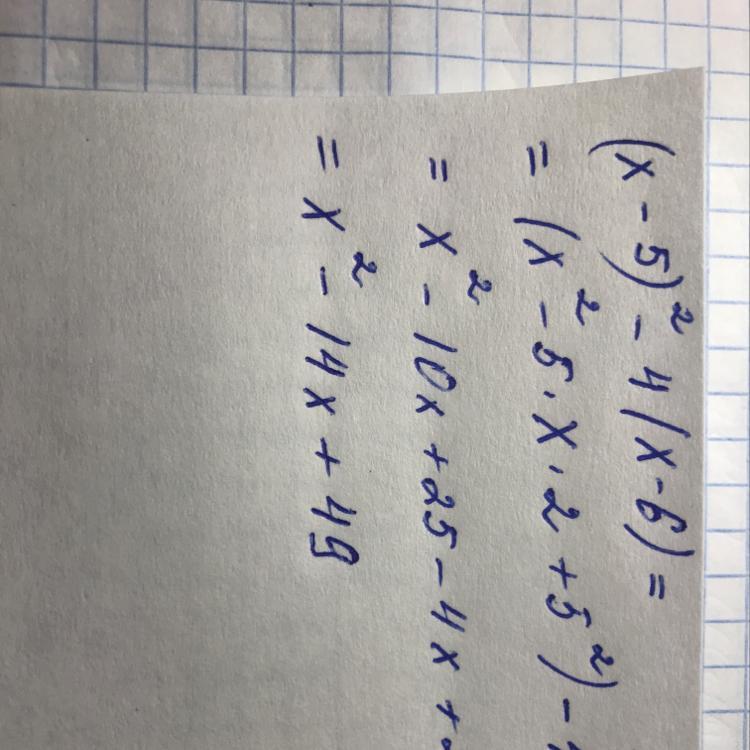 (x - 5)² - 4(x - 6) =
= (x² - 5 · x · 2 + 5²) -
= x² - 10x + 25 - 4x +
= x² - 14x + 49